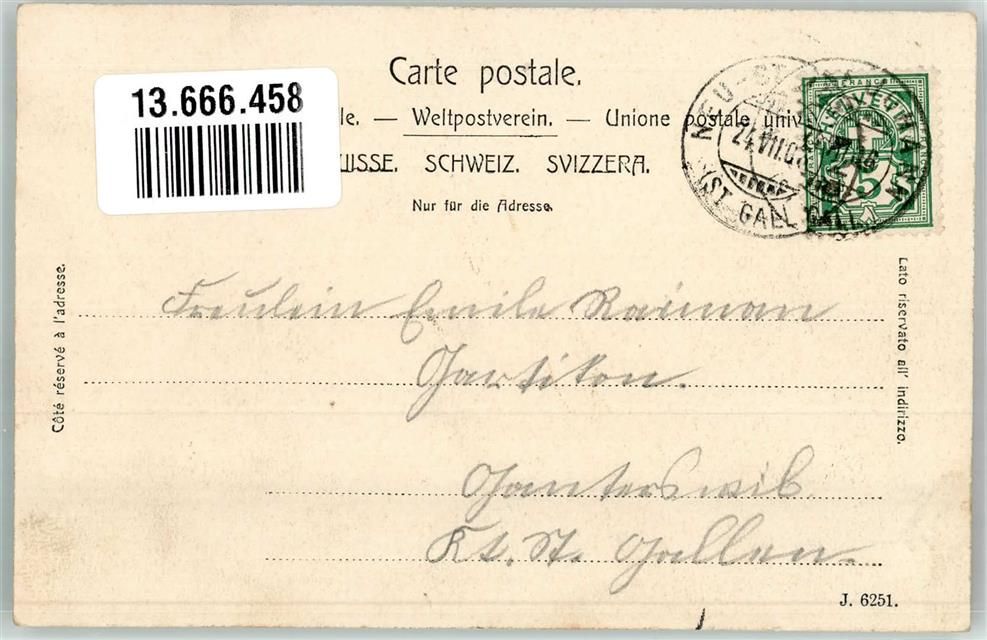 Carte postale.
13.666.458
le. — Weltpostverein. — Unione postale univ
UISSE. SCHWEIZ. SVIZZERA.
Nur für die Adresse.
NEU ST.
24.VII.0
(ST. GALL
HELVETIA
FRANCO
5
Côté réservé à l'adresse.
Lato riservato all' indirizzo.
Freulein Emile Raiman
Ganterswil
Kt. St. Gallen.
J. 6251.